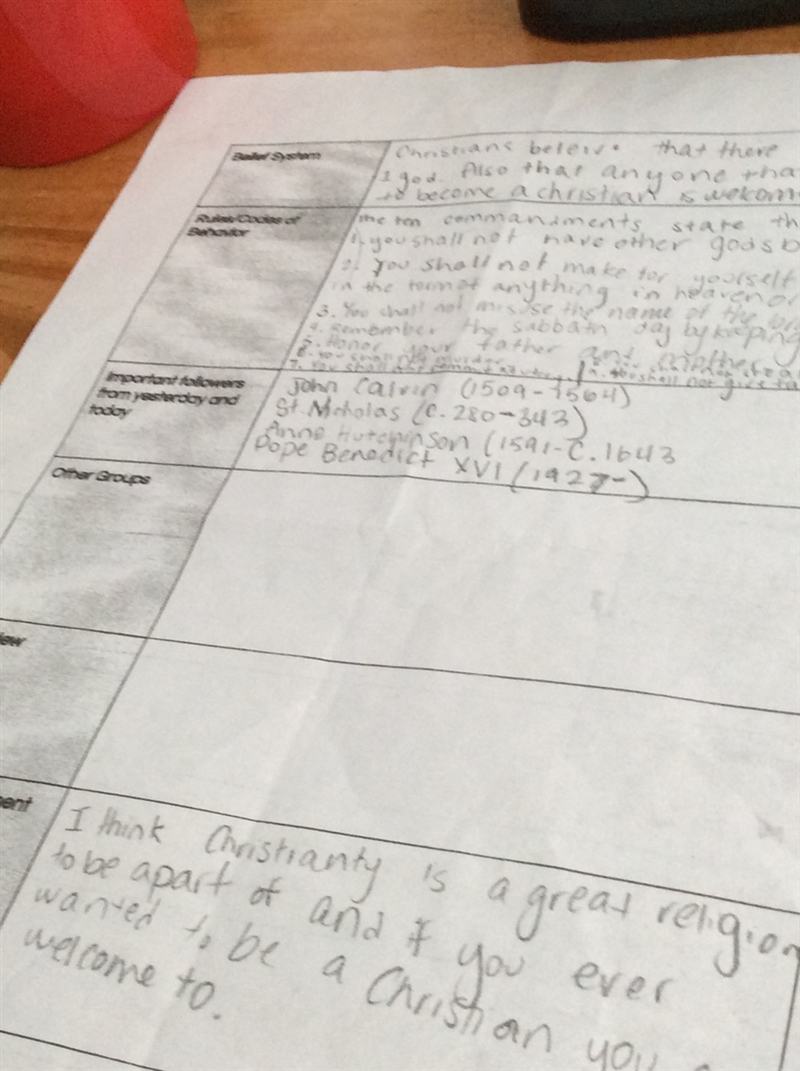 Belief System
Christians believe that there
1 god. Also that anyone tha
to become a christian is welcom
Rules/Codes of
Behavior
The ten commandments state th
1. you shall not have other gods b
2. You shall not make for yourself
in the form of anything in heaven or
3. You shall not misuse the name of the
4. Remember the sabbath day by keeping
5. Honor your father and mother
6. You shall not murder
7. You shall not commit shall not give
Important followers
from yesterday and
today
John Calvin (1509-1564)
St. Nicholas (C. 280-343)
Anne Hutchinson (1591-C.1643
Pope Benedict XVI (1927-)
Other Groups
iew
ent
I think Christianty is a great religion
to be apart of and if you ever
wanted to be a Christian you
welcome to.